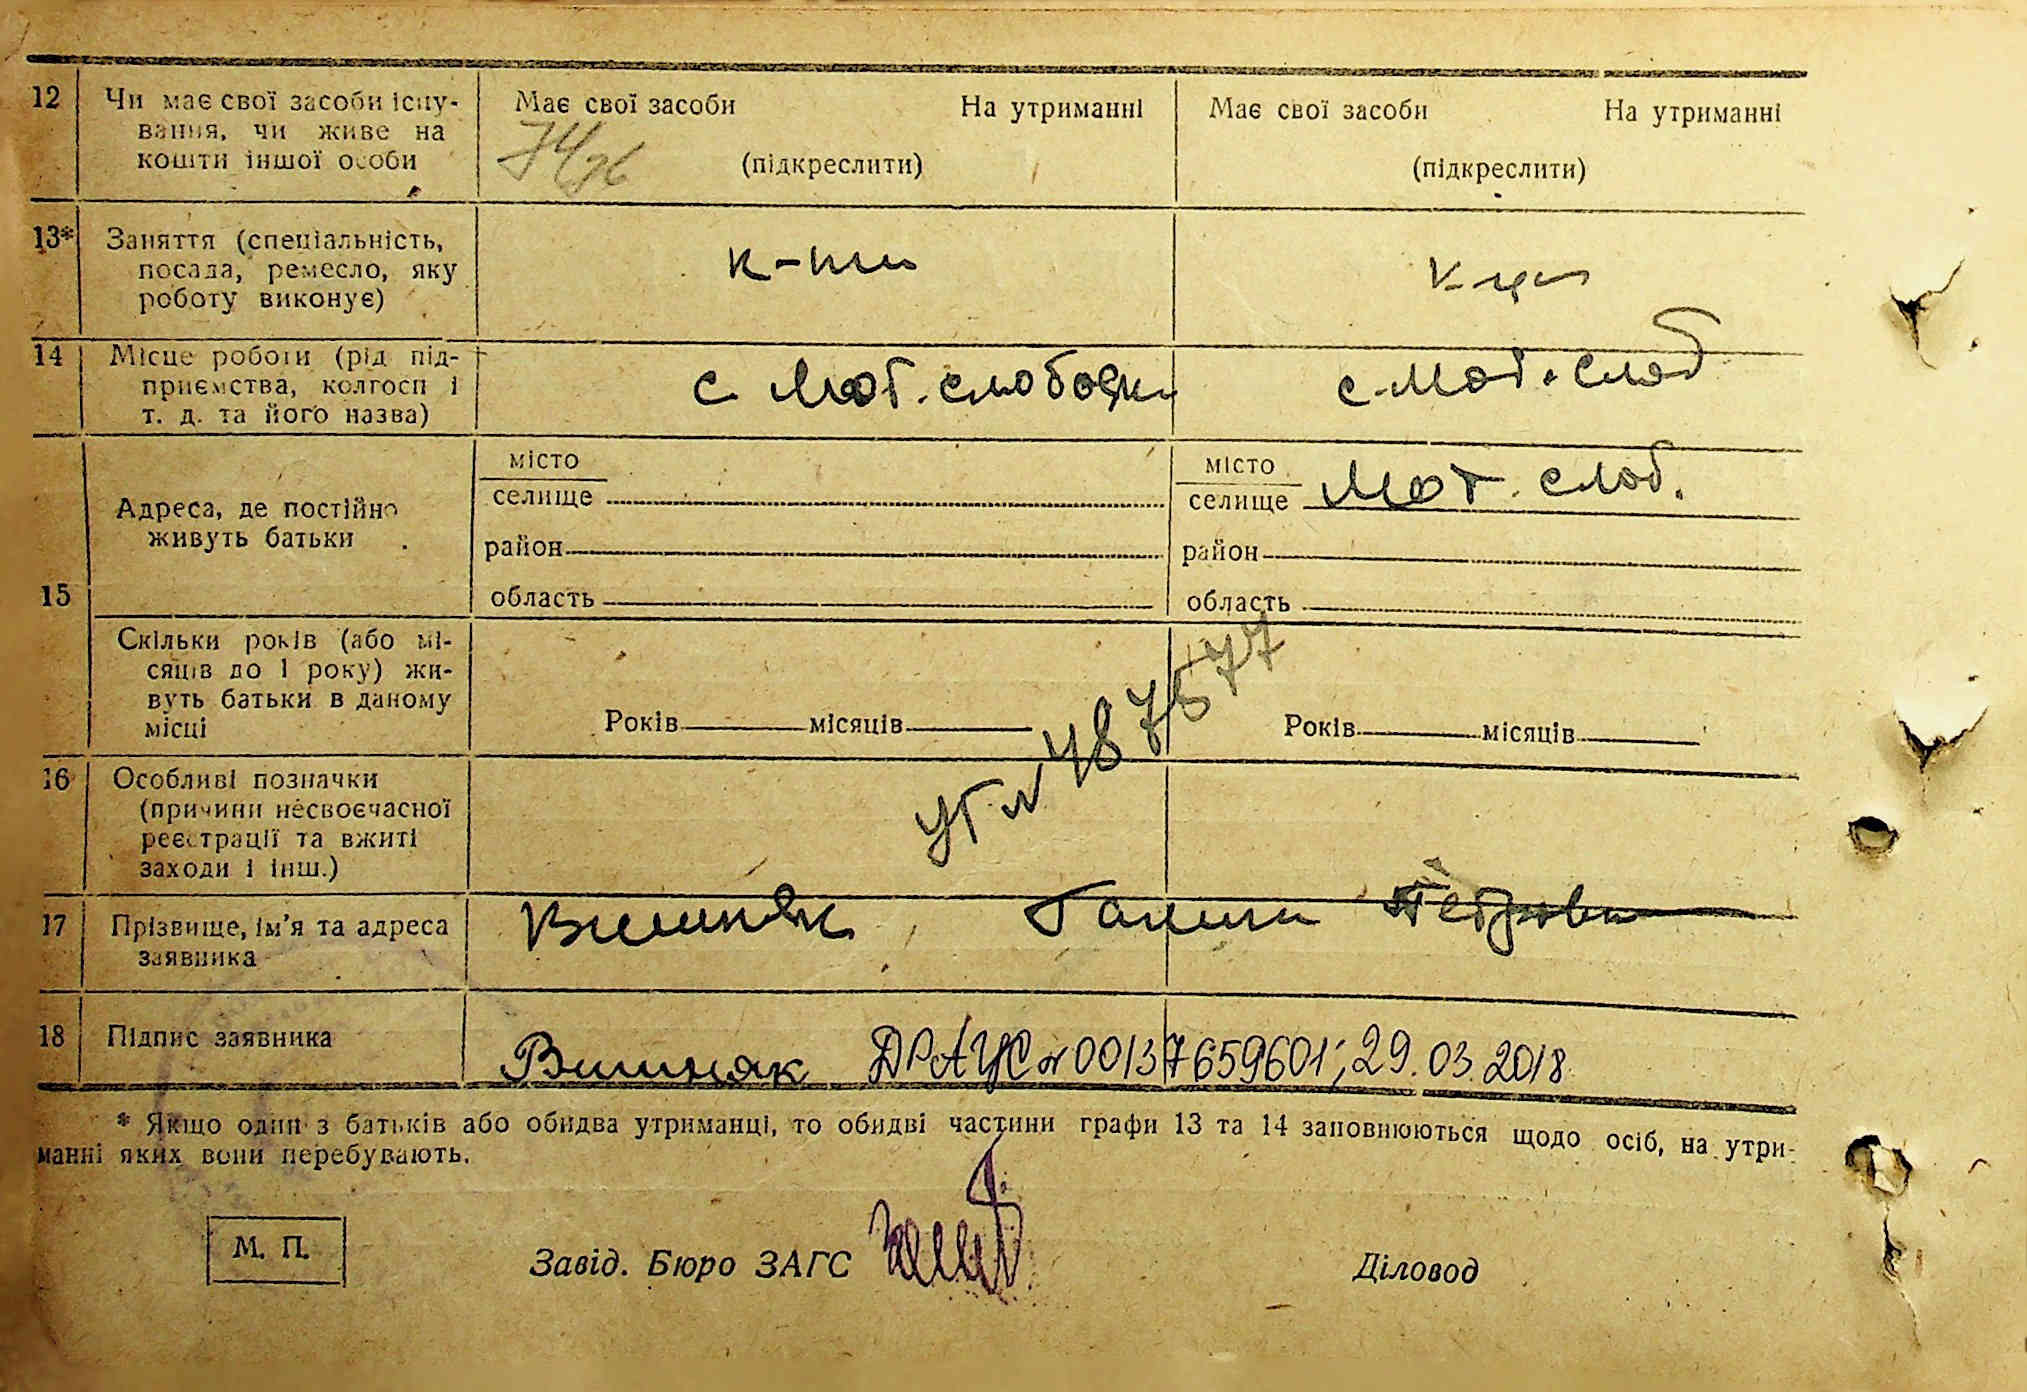 12 Чи має свої засоби існу- Має свої засоби На утриманні Має свої засоби На утриманні
вання, чи живе на
кошти іншої особи (підкреслити) (підкреслити)
13* Заняття (спеціальність,
посада, ремесло, яку
роботу виконує)
14 Місце роботи (рід під-
приємства, колгосп і с. Мот. слободки с. Мот. слоб
т. д. та його назва)
місто місто
селище селище Мот. слоб.
Адреса, де постійно
живуть батьки
район район
15
область область
Скільки років (або мі-
сяців до 1 року) жи-
вуть батьки в даному
місці Років місяців Років місяців
УГ № 487577
16 Особливі позначки
(причини несвоєчасної
реєстрації та вжиті
заходи і інш.)
17 Прізвище, ім'я та адреса Вишняк Галина Петровна
заявника
18 Підпис заявника Вишняк ДРАЦС № 00137659601; 29.03.2018
* Якщо один з батьків або обидва утриманці, то обидві частини графи 13 та 14 заповнюються щодо осіб, на утри-
манні яких вони перебувають.
М. П. Завід. Бюро ЗАГС Діловод